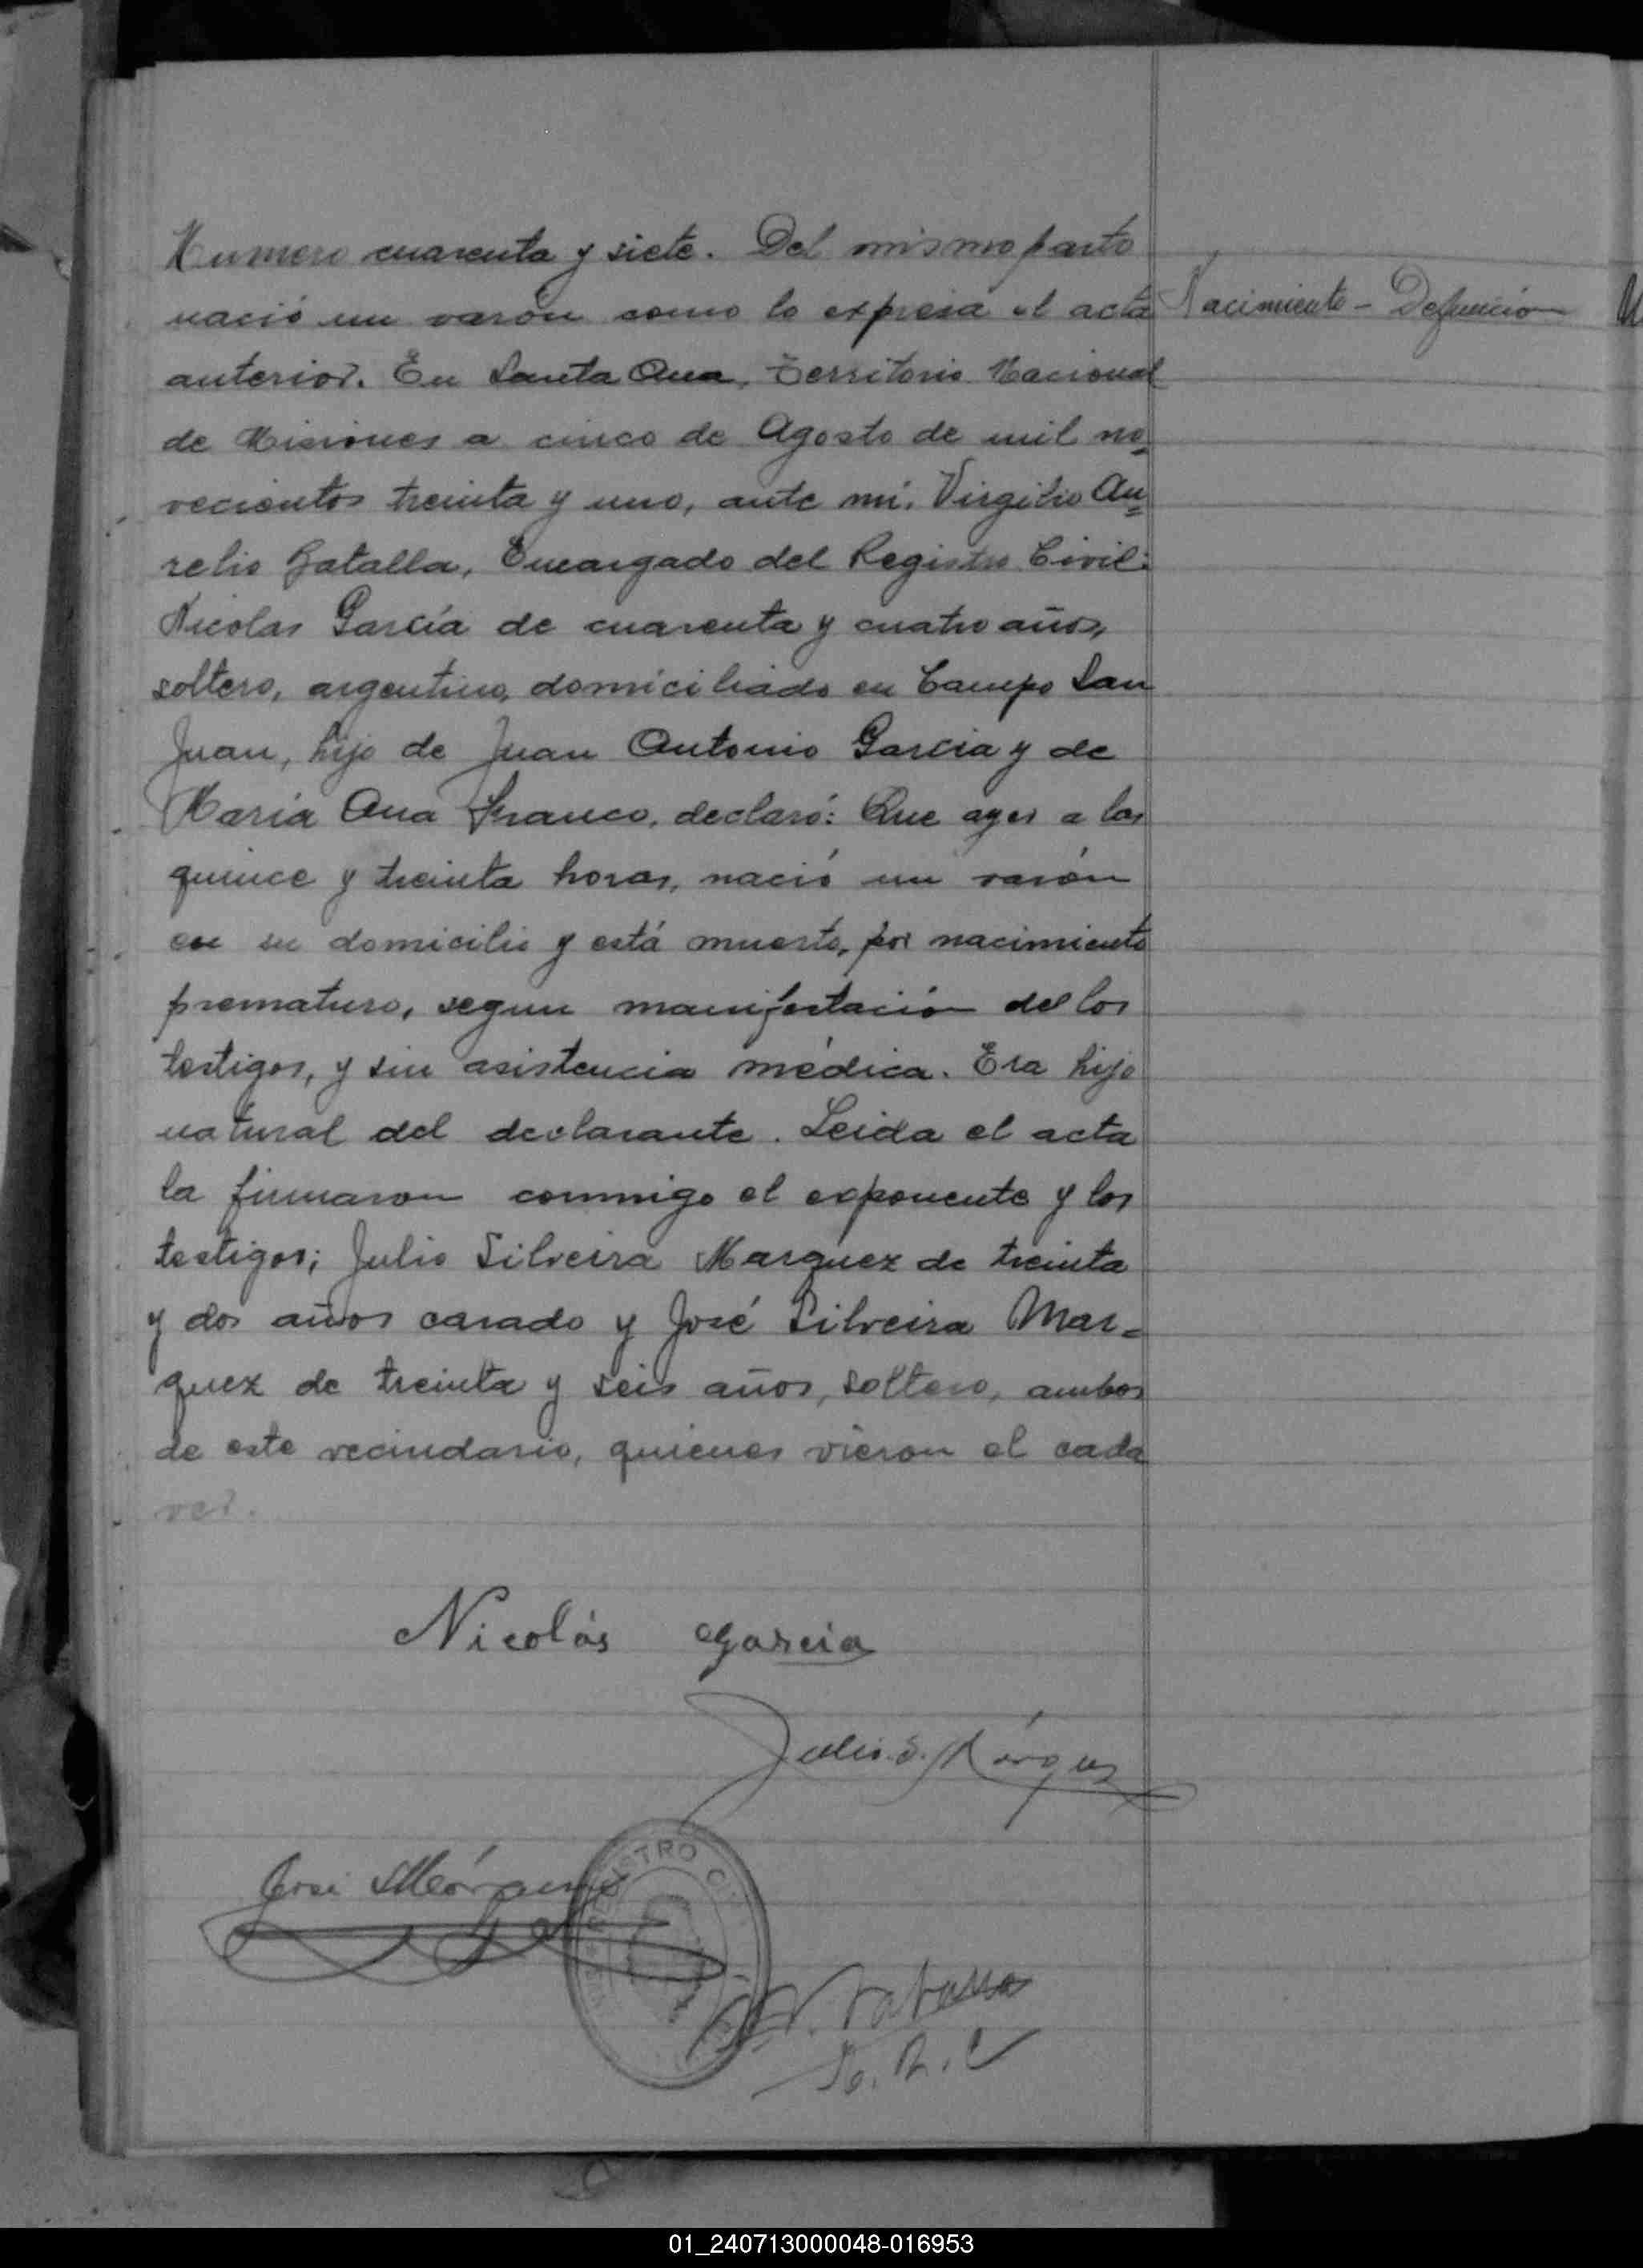 Numero cuarenta y siete. Del mismo parto
nació un varón como lo expresa el acta
Nacimiento - Defunción
anterior. En Santa Ana, Territorio Nacional
de Misiones a cinco de Agosto de mil no-
vecientos treinta y uno, ante mí, Virgilio Au=
relio Batalla, Encargado del Registro Civil:
Nicolas García de cuarenta y cuatro años,
soltero, argentino, domiciliado en Campo San
Juan, hijo de Juan Antonio Garcia y de
María Ana Franco, declaró: Que ayer a las
quince y treinta horas, nació un varón
en su domicilio y está muerto, por nacimiento
prematuro, segun manifestación de los
testigos, y sin asistencia médica. Era hijo
natural del declarante. Leida el acta
la firmaron conmigo el exponente y los
testigos; Julio Silveira Marquez de treinta
y dos años casado y José Silveira Mar-
quez de treinta y seis años, soltero, ambos
de este vecindario, quienes vieron el cada
ver.
Nicolás Garcia
Julio S. Márquez
José Márquez
REGISTRO
E. R. C
01_240713000048-016953